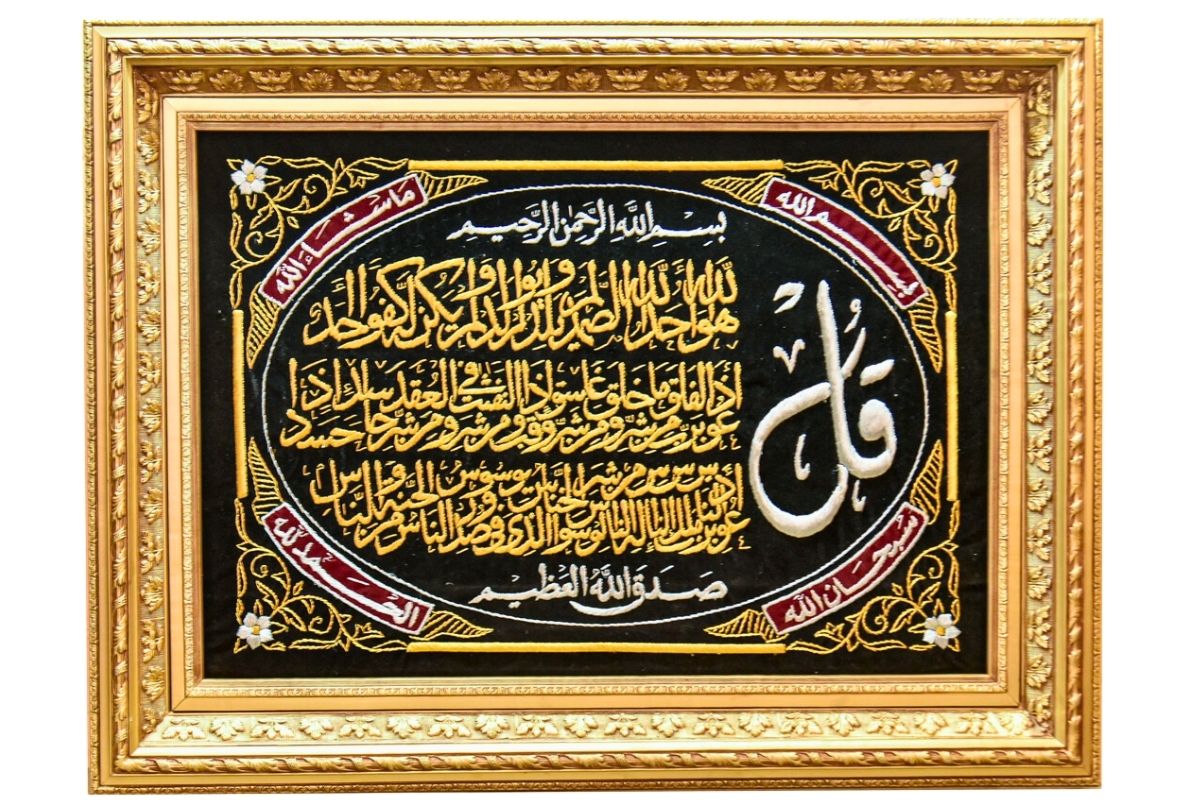 بسم الله
ما شاء الله
بِسْمِ اللَّهِ الرَّحْمٰنِ الرَّحِيمِ
قل
هو الله أحد الله الصمد لم يلد ولم يولد ولم يكن له كفوا أحد
أعوذ برب الفلق من شر ما خلق ومن شر غاسق إذا وقب ومن شر النفثت في العقد ومن شر حاسد إذا حسد
أعوذ برب الناس ملك الناس إله الناس من شر الوسواس الخناس الذي يوسوس في صدور الناس من الجنة والناس
صَدَقَ اللَّهُ الْعَظِيم
سبحان الله
الحمد لله